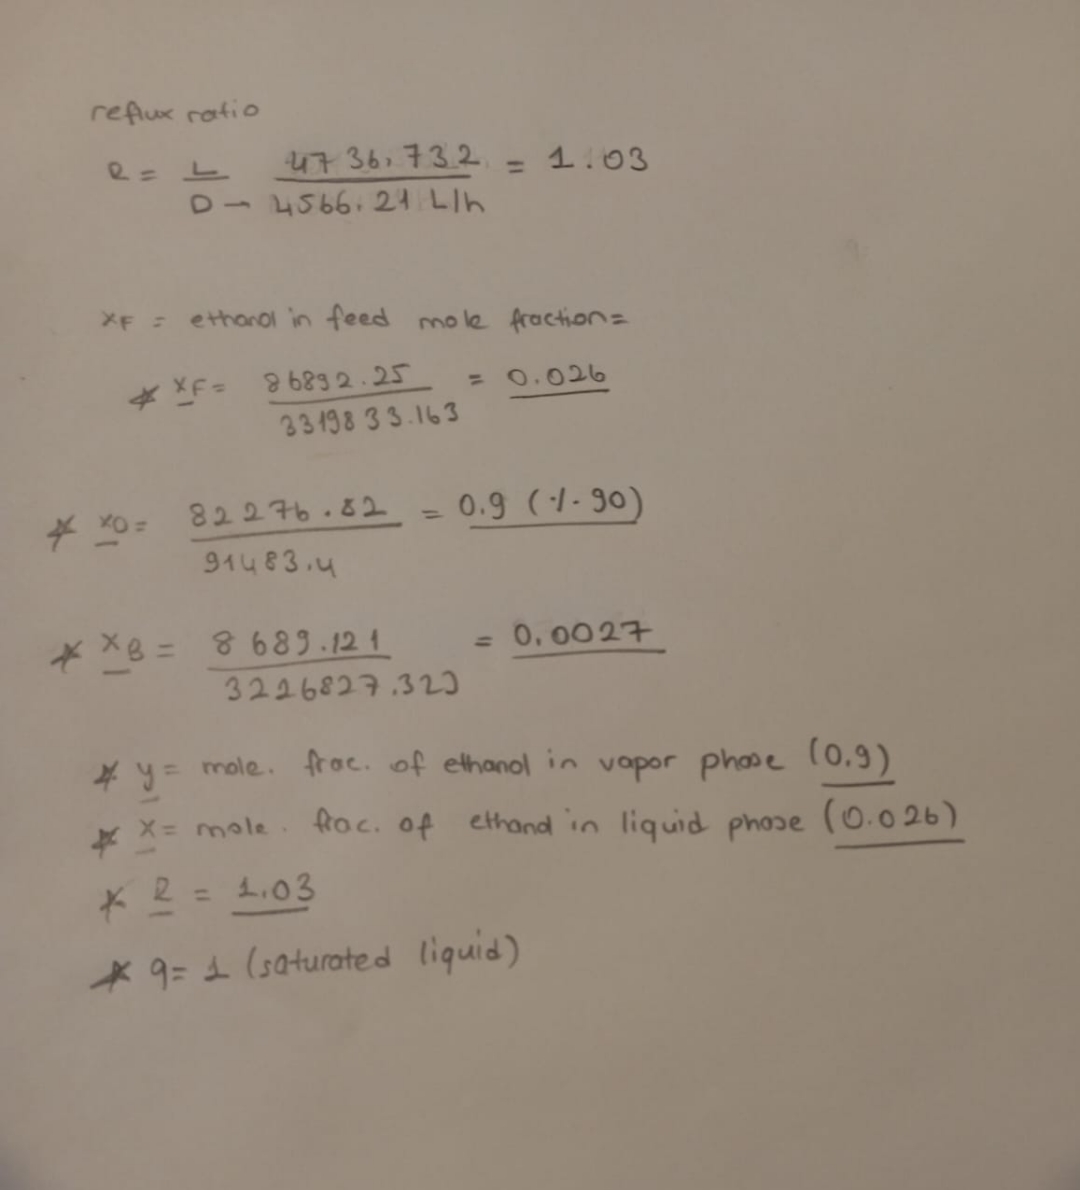 reflux ratio
R = L/D → 4736,732 / 4566.21 L/h = 1.03
xF = ethanol in feed mole fraction=
* xF= 86892.25 / 3319833.163 = 0.026
* xD= 82276.82 / 91483.4 = 0.9 (%90)
* xB= 8689.121 / 3226827.323 = 0.0027
* y= mole. frac. of ethanol in vapor phase (0.9)
* x= mole. frac. of ethanol in liquid phase (0.026)
* R = 1.03
* q= 1 (saturated liquid)